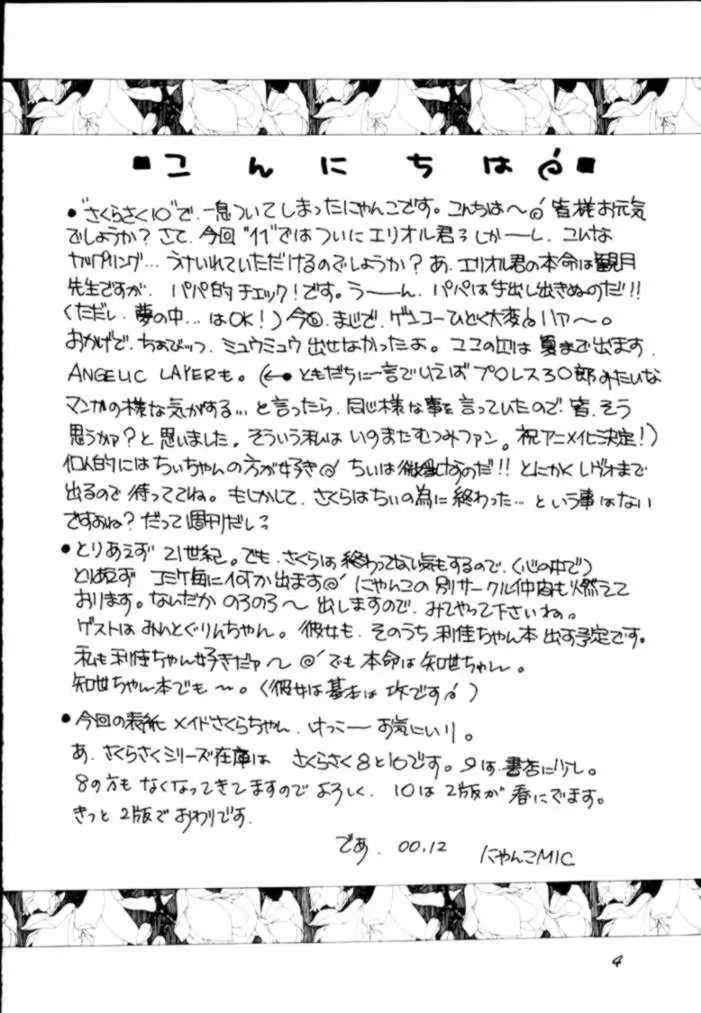 ■こんにちは■
●"さくらさく10"で、一息ついてしまったにゃんこです。こんちは〜 皆様お元気
でしょうか?さて、今回"11"ではついにエリオル君 しかーし、こんな
カップリング…うけいれていただけるのでしょうか?あ、エリオル君の本命は観月
先生ですが、パパ的チェック!です。うーーん、パパは手出し出きぬのだ!!
(ただし、夢の中…はOK!)今回、まじで、ゲンコーひどく大変 ハァ〜。
おかげで、ちょびっツ、ミュウミュウ出せなかったよ。ココの は夏まで出ます、
ANGELIC LAYERも。(←●ともだちに一言でいえばプロレス3〇郎みたいな
マンガの様な気がする…と言ったら、同じ様な事を言っていたので、皆、そう
思うかァ?と思いました。そういう私はいのまたむつみファン。祝アニメ化決定!)
個人的にはちぃちゃんの方が好き ちいは なのだ!! とにかく まで
出るので待っててね。もしかして、さくらはちぃの為に終わった…という事はない
ですよね?だって週刊だし?
●とりあえず 21世紀。でも、さくらは終わってない気もするので、(心の中で)
とりあえず コミケ毎に何か出ます にゃんこの別サークル仲間も燃えて
おります。なんだか のろのろ〜 出しますので、みてやって下さいね。
ゲストは みんとぐりんちゃん。彼女も、そのうち利佳ちゃん本 出す予定です。
私も利佳ちゃん好きだァ〜 でも本命は知世ちゃん。
知世ちゃん本でも〜。(彼女は基本は攻です)
●今回の表紙 メイドさくらちゃん、けっこーお気にいり。
あ、さくらさくシリーズ在庫は さくらさく8と10です。9は書店に少し。
8の方も なくなってきてますので よろしく、10は2版が 春にでます。
きっと 2版で おわりです。
であ、00.12 にゃんこMIC
4